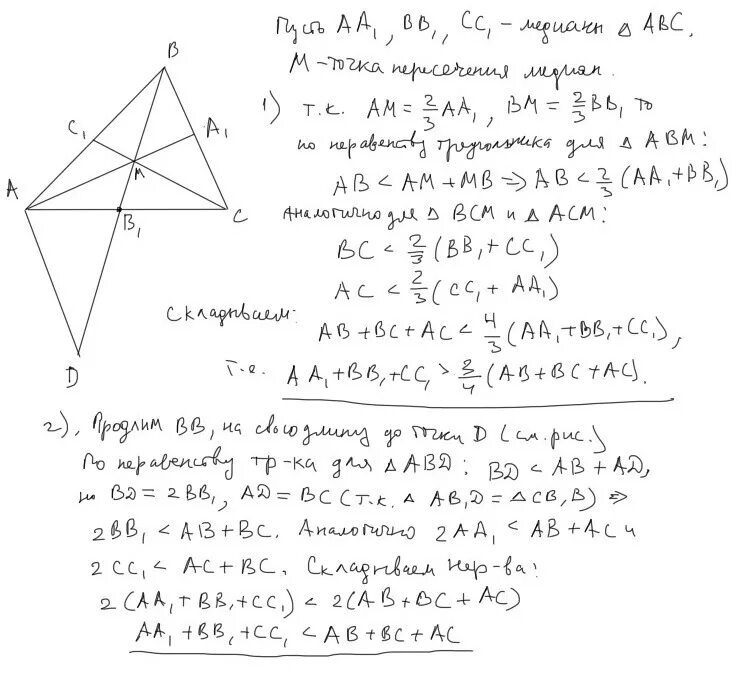 Пусть AA₁, BB₁, CC₁ – медианы △ ABC,
M – точка пересечения медиан.
1) т.к. AM = 2/3 AA₁, BM = 2/3 BB₁ то
по неравенству треугольника для △ ABM:
AB < AM + MB ⇒ AB < 2/3 (AA₁ + BB₁)
Аналогично для △ BCM и △ ACM:
BC < 2/3 (BB₁ + CC₁)
AC < 2/3 (CC₁ + AA₁)
Складываем:
AB + BC + AC < 4/3 (AA₁ + BB₁ + CC₁),
т.е. AA₁ + BB₁ + CC₁ > 3/4 (AB + BC + AC).
B
C₁
A₁
M
A
B₁
C
D
2), Продлим BB₁ на свою длину до точки D (см. рис.)
По неравенству тр-ка для △ ABD: BD < AB + AD,
но BD = 2BB₁, AD = BC (т.к. △ AB₁D = △CB₁B) ⇒
2BB₁ < AB + BC. Аналогично 2AA₁ < AB + AC и
2CC₁ < AC + BC. Складываем нер-ва:
2(AA₁ + BB₁ + CC₁) < 2(AB + BC + AC)
AA₁ + BB₁ + CC₁ < AB + BC + AC